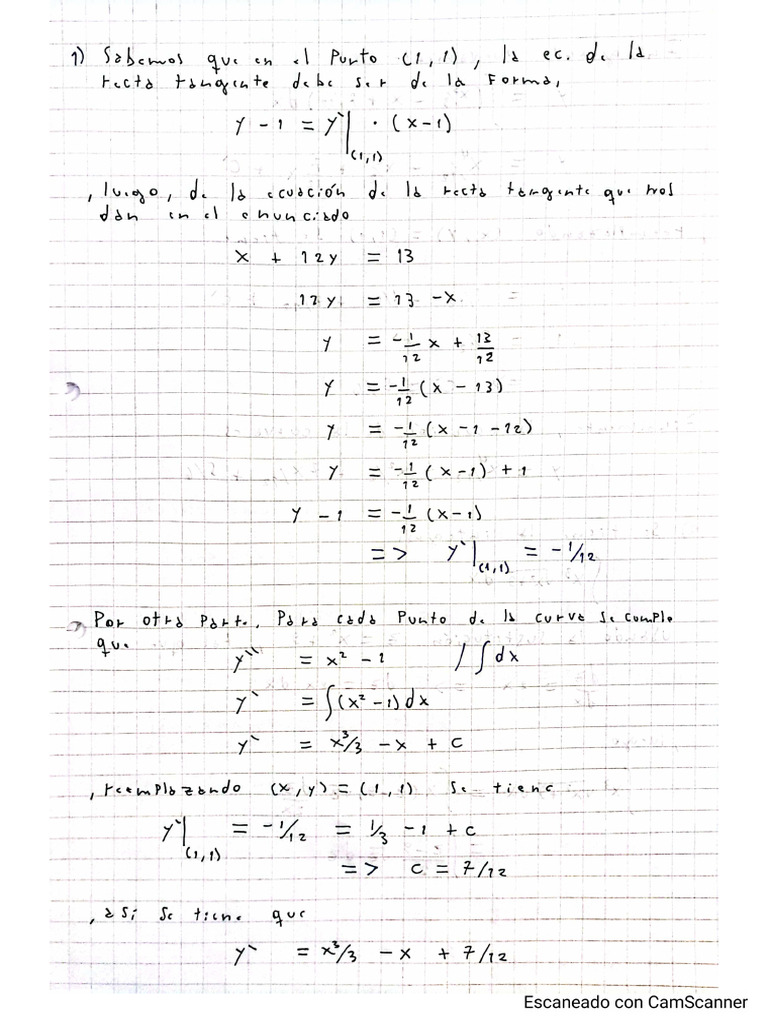 1) Sabemos que en el Punto (1,1), la ec. de la
recta tangente debe ser de la Forma,
y - 1 = y`|(1,1) · (x-1)
, luego, de la ecuación de la recta tangente que nos
dan en el enunciado
x + 12y = 13
12y = 13 - x
y = -1/12 x + 13/12
y = -1/12 (x - 13)
y = -1/12 (x - 1 - 12)
y = -1/12 (x-1) + 1
y - 1 = -1/12 (x-1)
=> y`|(1,1) = -1/12
Por otra parte, Para cada Punto de la curva se cumple
que
y`` = x² - 1 / ∫dx
y` = ∫(x² - 1) dx
y` = x³/3 - x + c
, reemplazando (x,y) = (1,1) se tiene
y`|(1,1) = -1/12 = 1/3 - 1 + c
=> c = 7/12
, así se tiene que
y` = x³/3 - x + 7/12
Escaneado con CamScanner